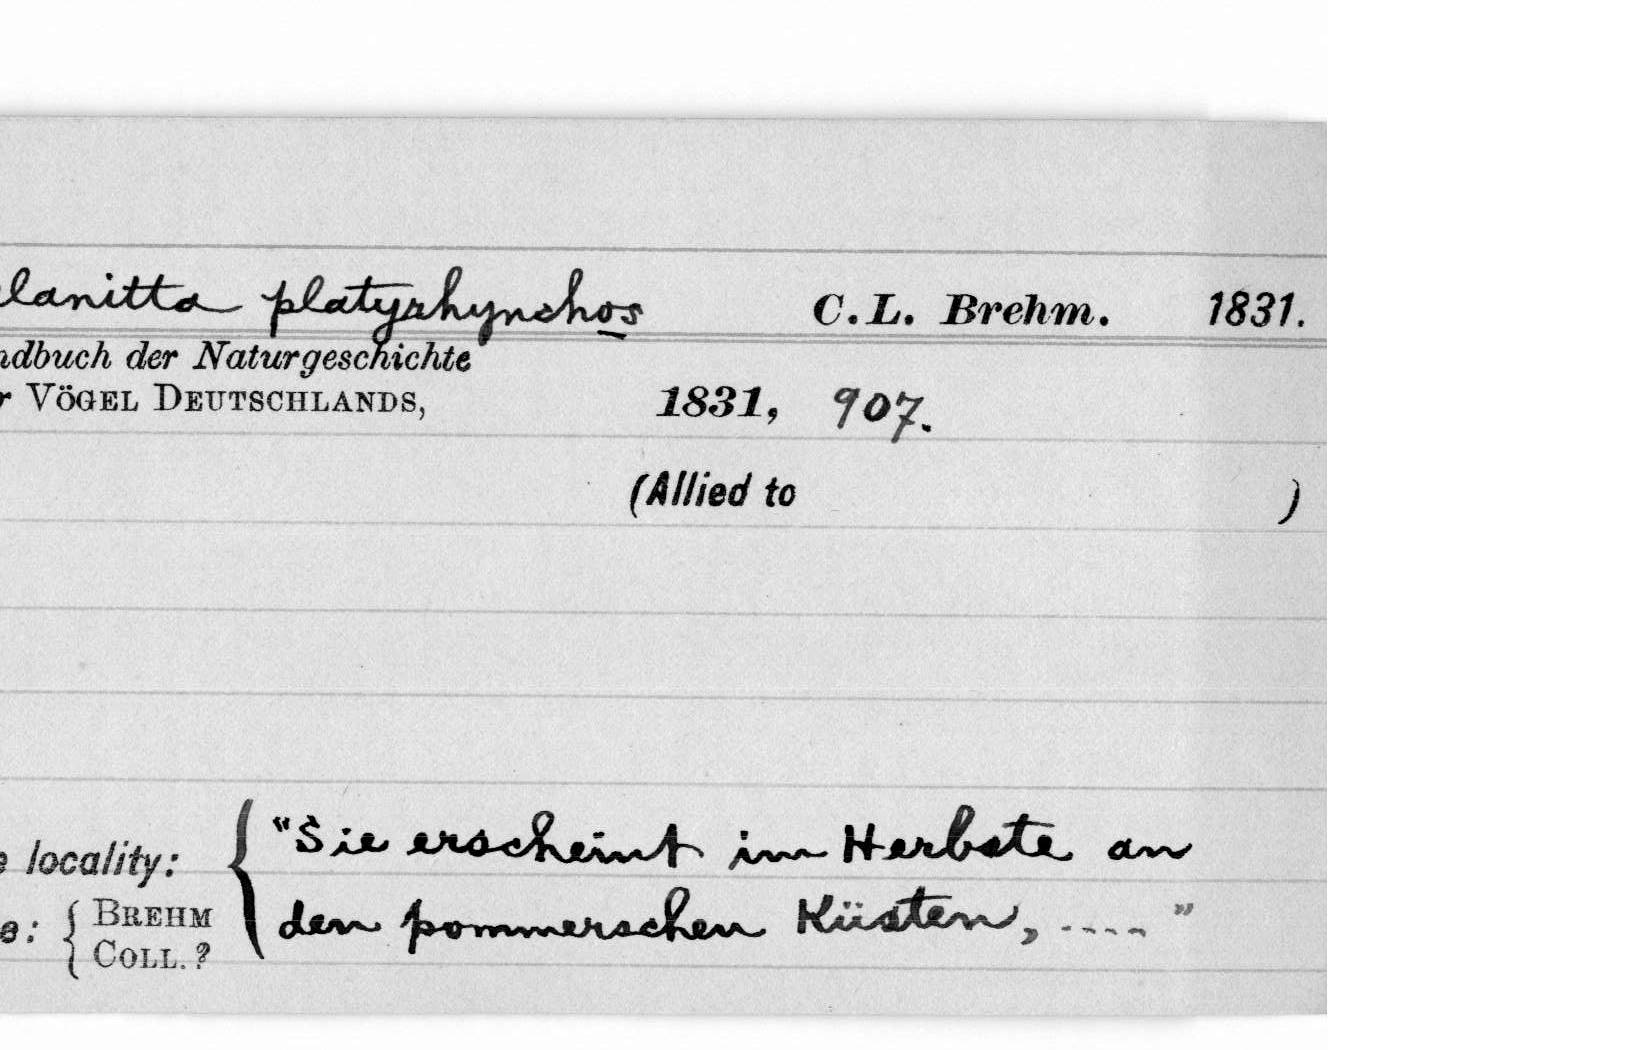 lanitta platyrhynchos C.L. Brehm. 1831.
ndbuch der Naturgeschichte
r VÖGEL DEUTSCHLANDS, 1831, 907.
(Allied to )
locality: { "Sie erscheint im Herbste an
: { BREHM den pommerschen Küsten, ....."
COLL. ?